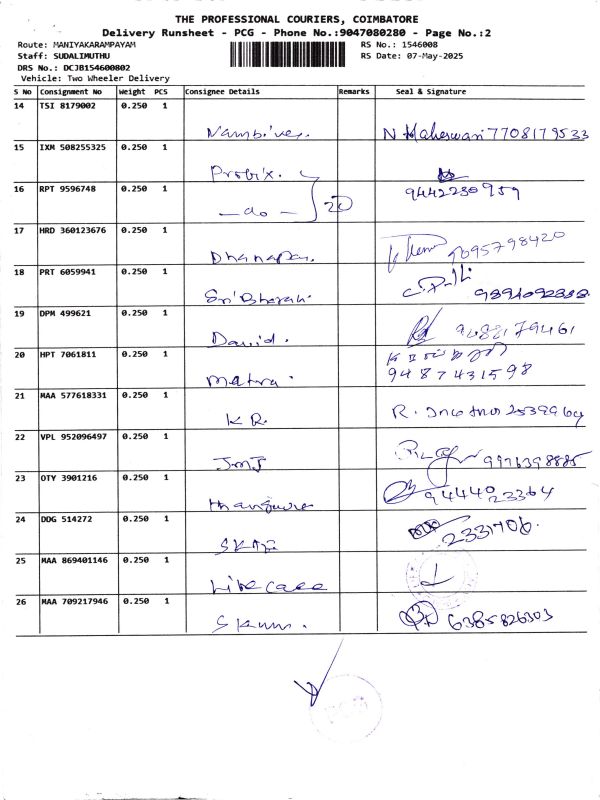 THE PROFESSIONAL COURIERS, COIMBATORE
Delivery Runsheet - PCG - Phone No.:9047080280 - Page No.:2
Route: MANIYAKARAMPAYAM RS No.: 1546008
Staff: SUDALIMUTHU RS Date: 07-May-2025
DRS No.: DCJB154600802
Vehicle: Two Wheeler Delivery
S No Consignment No Weight PCS Consignee Details Remarks Seal & Signature
14 TSI 8179002 0.250 1
N Maheswari 7708179533
15 IXM 508255325 0.250 1
Probix.
16 RPT 9596748 0.250 1 9442230959
- do -
17 HRD 360123676 0.250 1
Dhanapa. 9095798420
18 PRT 6059941 0.250 1
Sri Bharath
19 DPM 499621 0.250 1
David.
20 HPT 7061811 0.250 1
9487431598
21 MAA 577618331 0.250 1
K R. R. 2539964
22 VPL 952096497 0.250 1
JMJ 9976398885
23 OTY 3901216 0.250 1
9444023364
24 DDG 514272 0.250 1
2331706.
25 MAA 869401146 0.250 1
Life care
26 MAA 709217946 0.250 1
6385826303